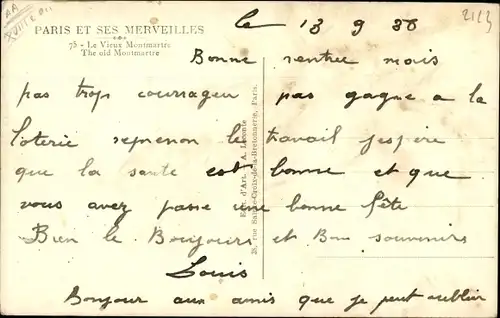 AA
XVIIIe
PARIS ET SES MERVEILLES
75 - Le Vieux Montmartre
The old Montmartre
le 13 9 38
2123
Bonne rentree mais
pas trop courrageu pas gagne a la
loterie reprenon le travail jespere
que la sante est bonne et que
vous avez passe une bonne fête
Bien le Boujours et Bon souvenirs
Louis
Bonjour aux amis que je peut oublier
Edit. d'Art. A. Leconte
38, rue Sainte-Croix-de-la-Bretonnerie, Paris.